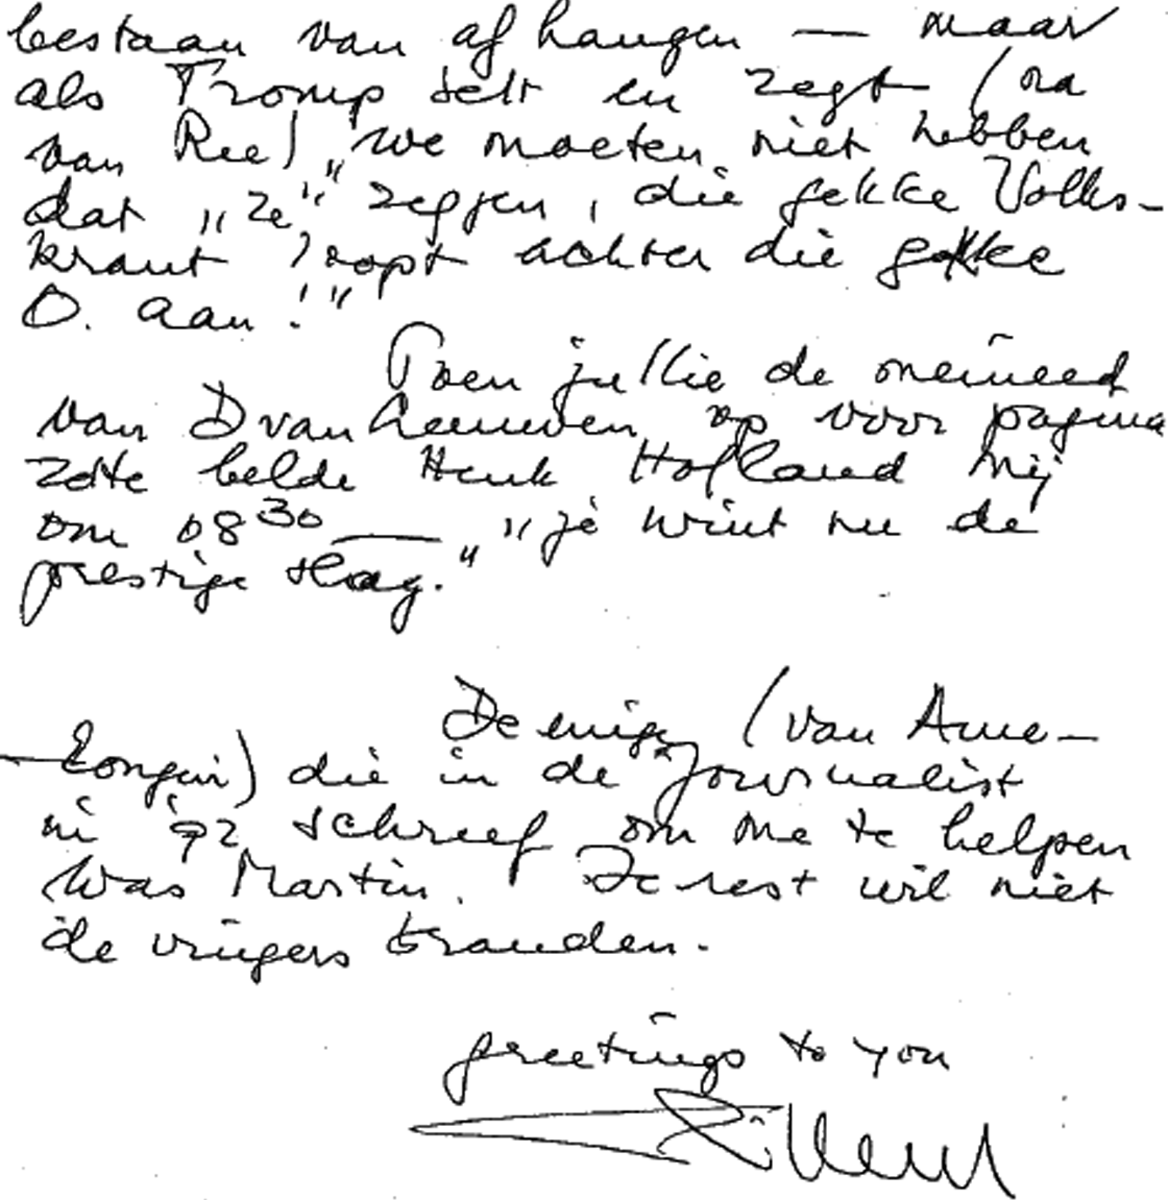 bestaan van af hangen — maar
als Tromp belt en zegt (na
van Ree) „we moeten niet hebben
dat „ze" zeggen, die gekke Volks-
krant loopt achter die gekke
O. aan!"
Toen jullie de meineed
van D van Leeuwen op voor pagina
zette belde Henk Hofland mij
om 08 30 — „je wint nu de
prestige slag."
De enige (van Ame-
-rongen) die in de Journalist
in '92 schreef om me te helpen
was Martin. De rest wil niet
de vingers branden.
greetings to you
Willem